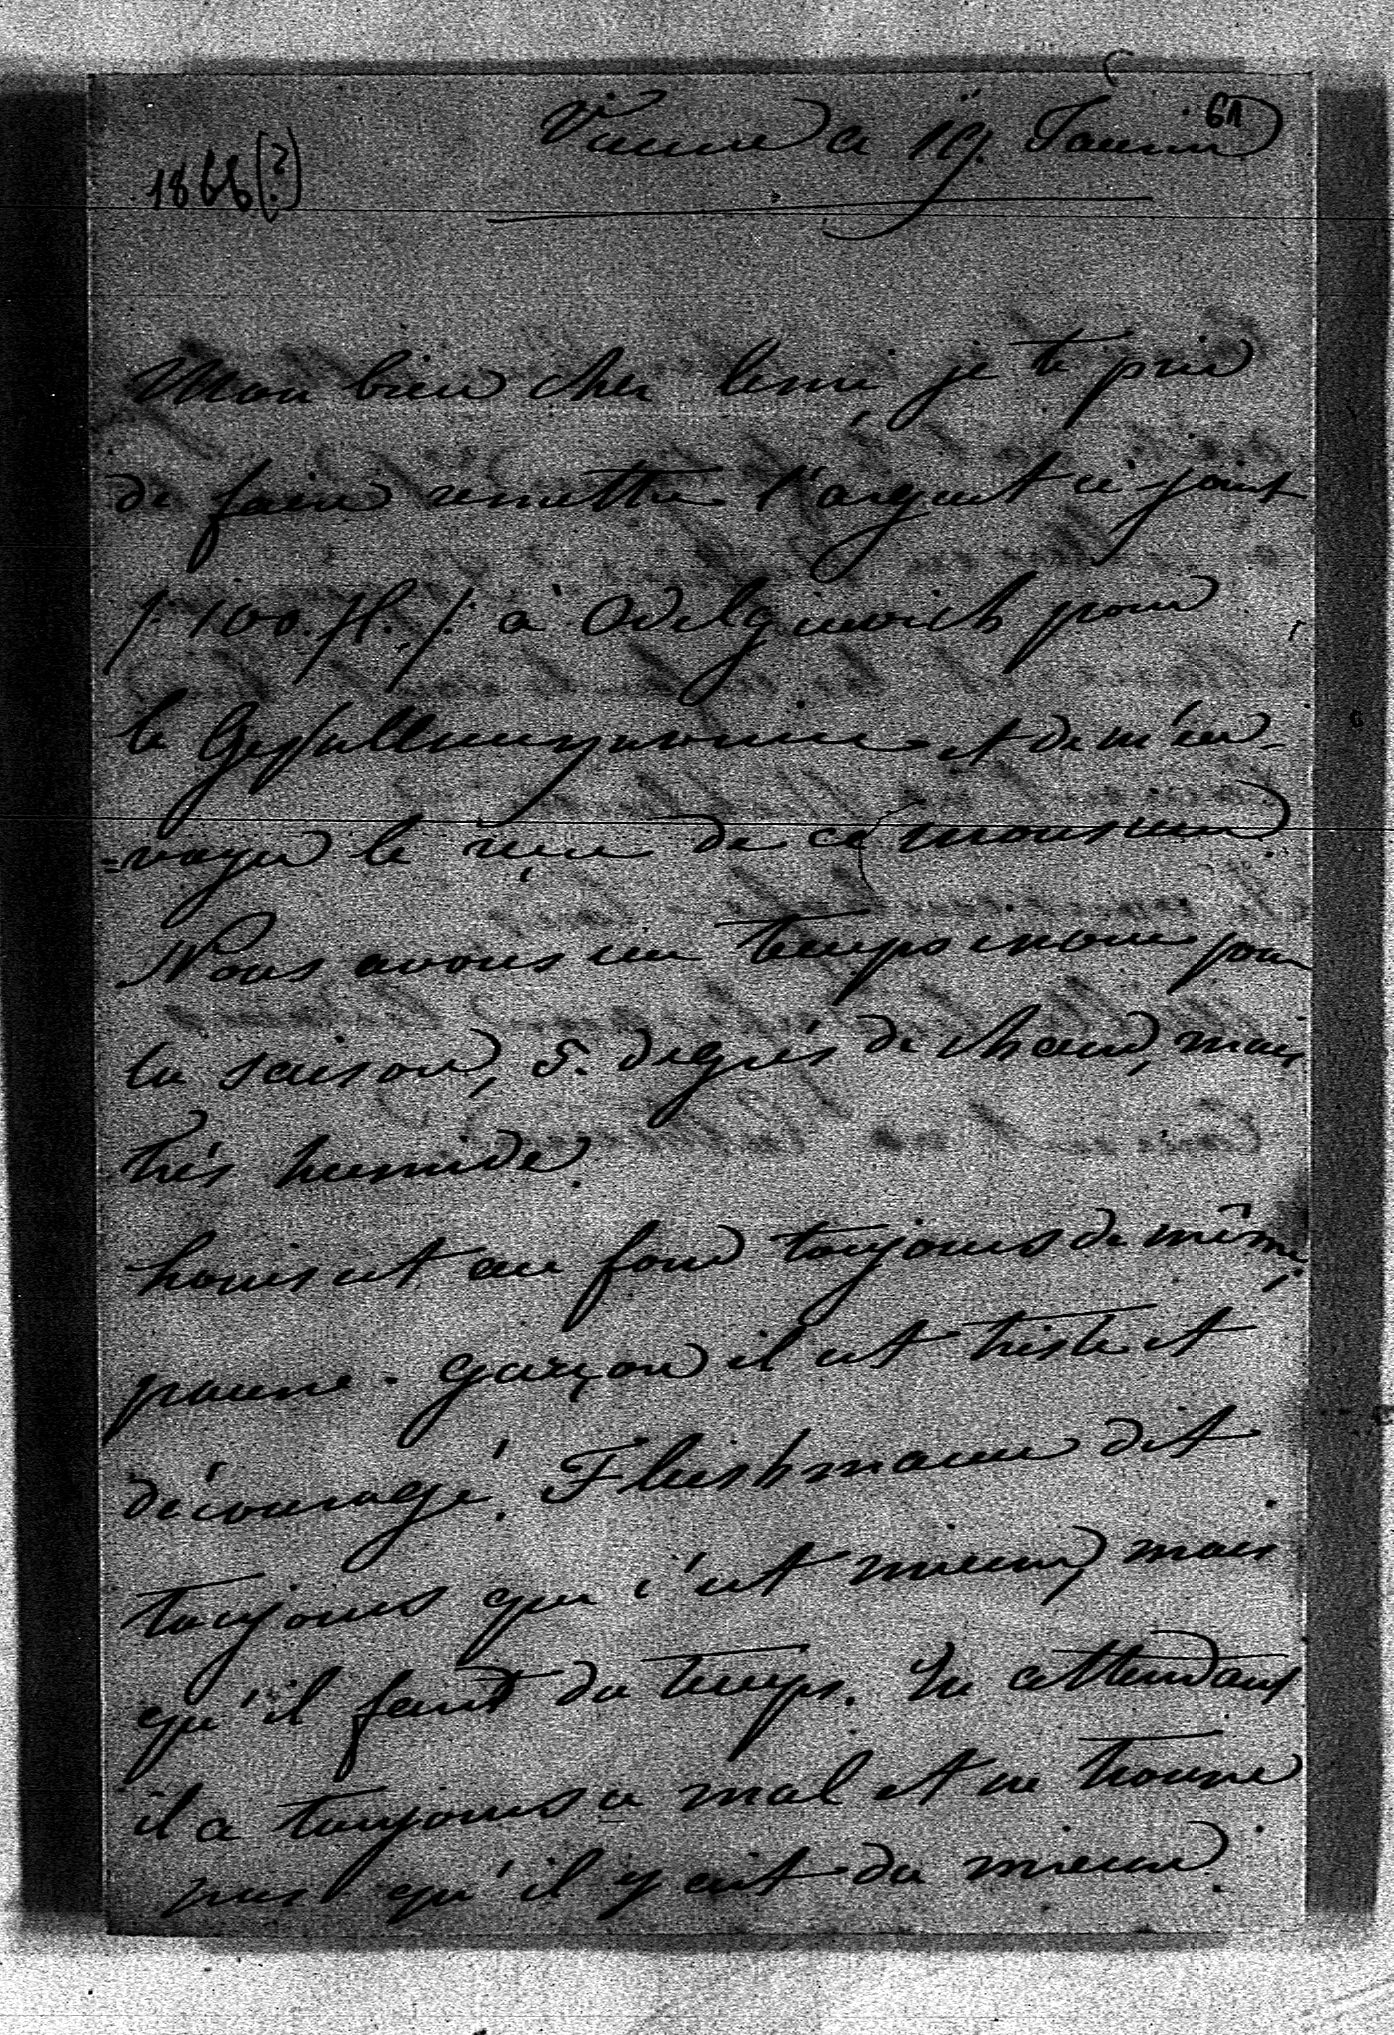 61
Vienne ce 19. Janvier
1866 (?)
Mon bien cher Venni je te prie
de faire remettre l'argent ci joint
/: 100. fl. :/ à Odelga
pour
le et de m'en-
=voyer le reçu de ce monsieur
Nous avons un temps inoui pour
la saison, 5. degrés de chaud, mais
très humide.
Louis est au fond toujours de même,
pauvre garçon il est triste et
découragé. Fleishmann dit
toujours que c'est mieux, mais
qu'il faut du temps. En attendant
il a toujours mal et ne trouve
pas qu'il y ait du mieux.